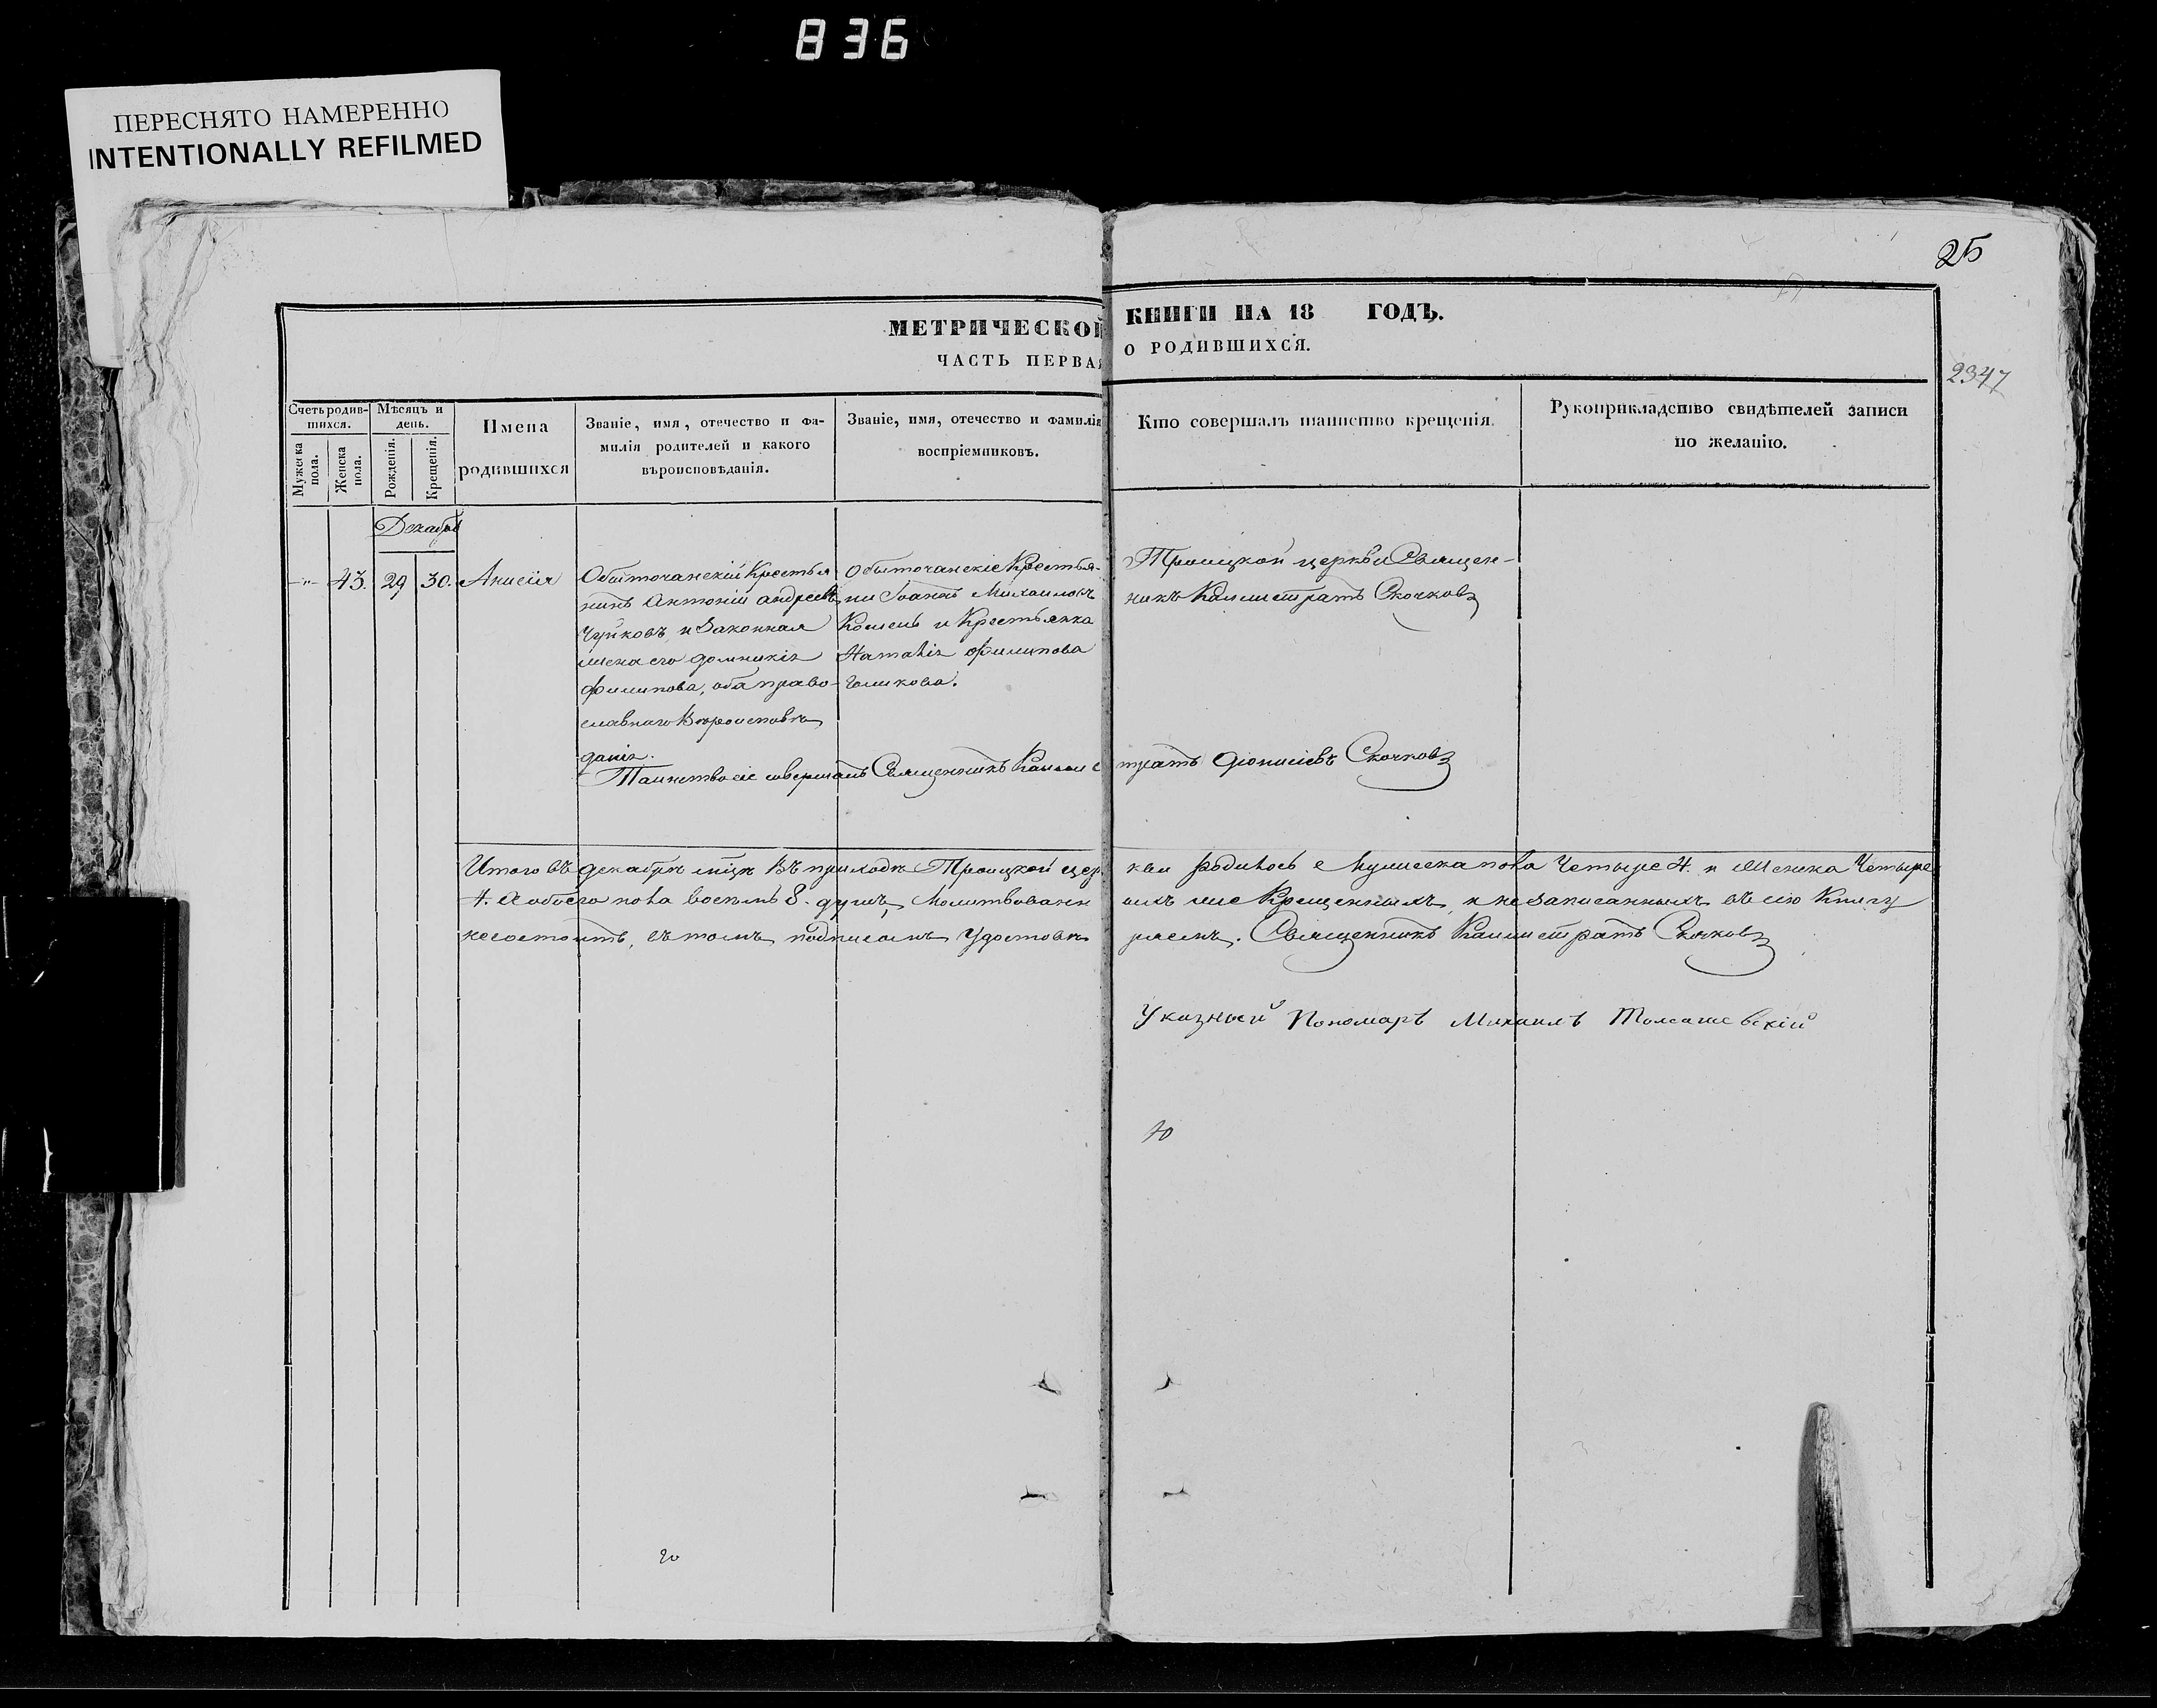 836
ПЕРЕСНЯТО НАМЕРЕННО
INTENTIONALLY REFILMED
25
2347
МЕТРИЧЕСКОЙ КНИГИ НА 18 ГОДЪ.
ЧАСТЬ ПЕРВАЯ О РОДИВШИХСЯ.
Счетъ родив-
шихся.
Мужеска
пола.
Женска
пола.
Мѣсяцъ и
день.
Рожденія.
Крещенія.
Имена
родившихся
Званіе, имя, отечество и фа-
милія родителей и какого
вѣроисповѣданія.
Званіе, имя, отечество и фамилія
воспріемниковъ.
Кто совершалъ таинство крещенія.
Рукоприкладство свидѣтелей записи
по желанію.
Декабрь
43. 29 30. Анисія
Обыточанскій Крестья
нинъ Антоній андреевъ
Чуйковъ, и Законная
жена его домникія
филипова, оба право-
славнаго Вѣроисповѣ
данія.
Обыточанскіе Крестья-
ни Іоаннъ Михаиловъ
и Крестьянка
Наталія филипова
Голикова.
Троицкой церкви Священ-
никъ Калистратъ Скочковъ
Таинство сіе совершалъ Священникъ Калис тратъ Діонисіевъ Скочковъ
Итого въ декабрѣ мцѣ Въ приходѣ Троицкой цер кви родилось Мужеска пола Четыре 4. и Женска Четыре
4. А обоего пола восемь 8. душъ, Молитвованн ыхъ Крещенныхъ, и не записанныхъ въ сію Книгу
несостоитъ, въ томъ подписомъ Удостовѣ ряемъ. Священникъ Калистратъ Скочковъ
Указный Пономарь Михаилъ
20